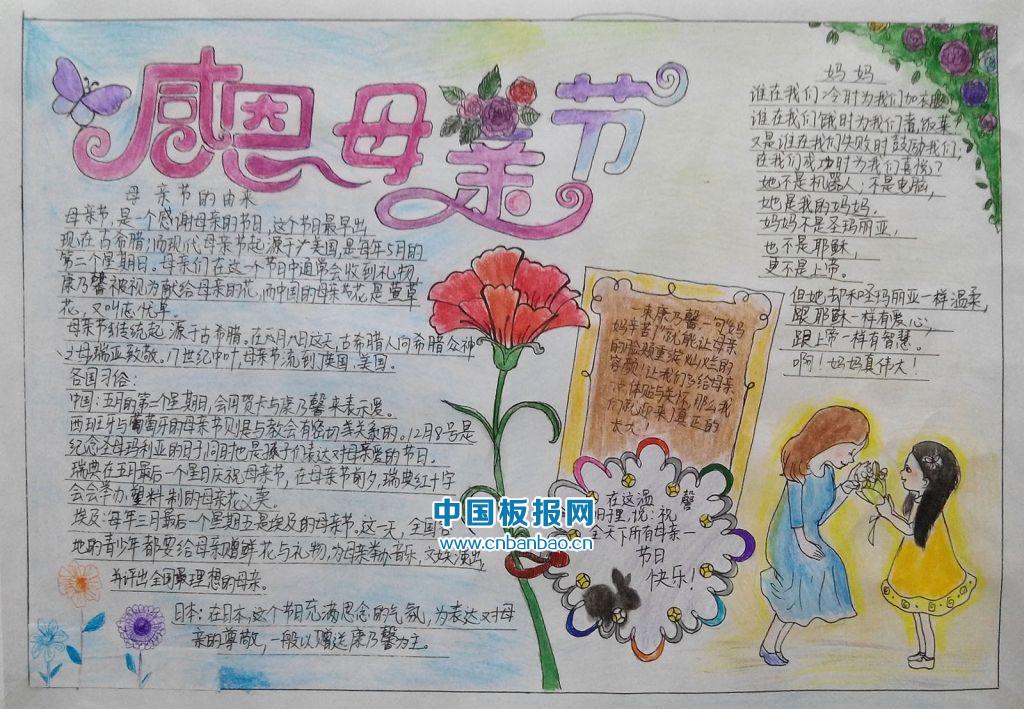 感恩母亲节
母亲节的由来
母亲节,是一个感谢母亲的节日,这个节日最早出
现在古希腊;而现代母亲节起源于美国,是每年5月的
第二个星期日。母亲们在这一个节日中通常会收到礼物,
康乃馨被视为献给母亲的花,而中国的母亲节花是萱草
花,又叫忘忧草。
母亲节传统起源于古希腊。在 这天,古希腊人向希腊众神
之母瑞亚致敬。17世纪中叶,母亲节流到英国、美国。
各国习俗:
中国:五月的第二个星期日,会用贺卡与康乃馨来表示爱。
西班牙与葡萄牙的母亲节则是与教会有密切关系的。12月8号是
纪念圣母玛利亚的日子同时也是孩子们表达对母亲爱的节日。
瑞典在五月最后一个星日庆祝母亲节,在母亲节前夕,瑞典红十字
会会举办塑料制的母亲花义卖。
埃及:每年三月最后一个星期五是埃及的母亲节。这一天,全国各
地的青少年都要给母亲赠鲜花与礼物,为母亲举办音乐、文娱演出,
并评出全国最理想的母亲。
日本:在日本,这个节日充满思念的气氛,为表达对母
亲的尊敬,一般以赠送康乃馨为主。
妈妈
谁在我们冷时为我们加衣
谁在我们饿时为我们煮饭菜?
又是谁在我们失败时鼓励我们,
在我们成功时为我们喜悦?
她不是机器人;不是电脑,
她是我的妈妈。
妈妈不是圣玛丽亚,
也不是耶稣,
更不是上帝。
但她却和圣玛丽亚一样温柔,
跟耶稣一样有爱心,
跟上帝一样有智慧。
啊!妈妈真伟大!
一束康乃馨,一句"妈
妈辛苦了"就能让母亲
的脸颊重绽灿烂的
容颜!让我们多给母亲
一点体贴与关怀,那么我
们就迎来了真正的
太太!
在这温 馨
的日子里,说:祝
全天下所有母亲一
节日
快乐!
中国板报网
www.cnbanbao.cn